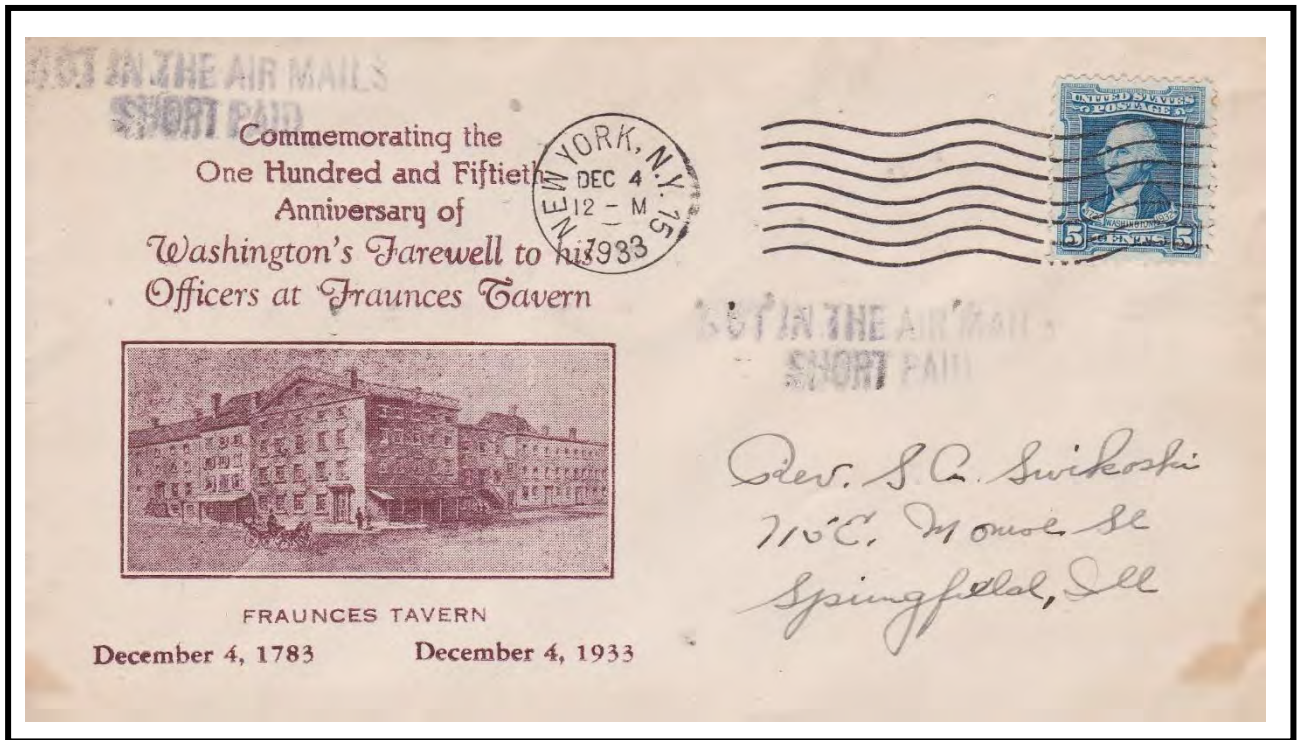 NOT IN THE AIR MAILS
SHORT PAID
Commemorating the
One Hundred and Fiftieth
Anniversary of
Washington's Farewell to his
Officers at Fraunces Tavern
NEW YORK, N.Y. 15
DEC 4
12 - M
1933
UNITED STATES
POSTAGE
WASHINGTON
5 CENTS 5
NOT IN THE AIR MAILS
SHORT PAID
Rev. S. A. Swikoski
Monroe St
Springfield, Ill
FRAUNCES TAVERN
December 4, 1783 December 4, 1933